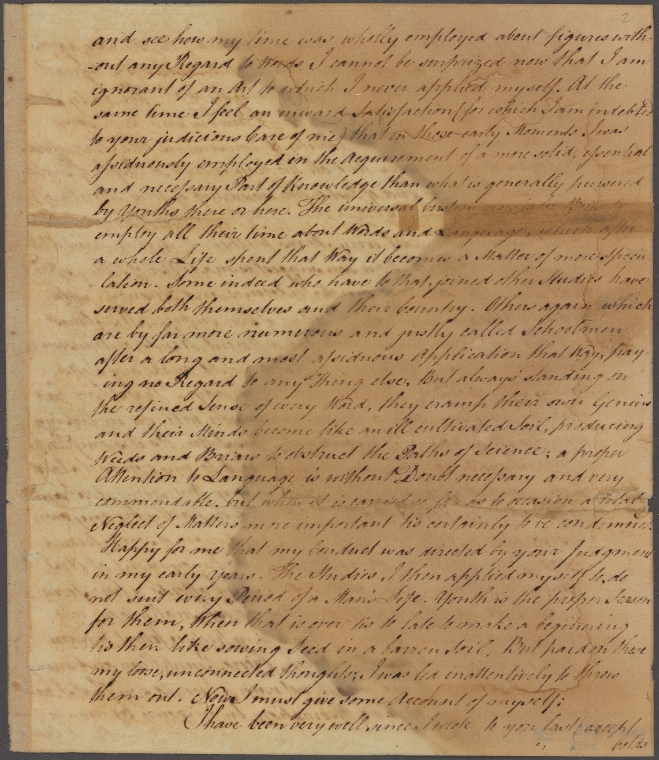 2
and see how my time was wholly employed about figures with-
-out any Regard to Words I cannot be surprized now that I am
ignorant of an Art to which I never applied myself. At the
same time I feel an inward Satisfaction (for which I am indebted
to your judicious Care of me) that in those early Moments I was
assiduously employed in the Acquirement of a more solid, essential
and necessary Part of Knowledge than what is generally pursued
by Youths there or here. The universal
employ all their time about Words and Language, which after
a whole Life spent that Way it becomes a Matter of mere specu
-lation. Some indeed who have to that joined other Studies have
served both themselves and their Country. Others again which
are by far more numerous and justly called Schoolmen
after a long and most assiduous Application that Way, pay-
-ing no Regard to any Thing else, But always standing on
the refined Sense of every Word, they cramp their own Genius
and their Minds become like an ill cultivated Soil, producing
Weeds and Briars to obstruct the Paths of Science; a proper
Attention to Language is without Doubt necessary and very
commendable, but when it is carried so far as to occasion a total
Neglect of Matters more important tis certainly to be condemned.
Happy for me that my Conduct was directed by your Judgment
in my early Years. The Studies I then applied myself to, do
not suit every Period of a Man's Life. Youth is the proper Season
for them, When that is over tis to late to make a beginning
tis then like sowing Seed in a barren Soil. But pardon these
my loose, unconnected thoughts; I was led inattentively to throw
them out. Now I must give some Account of myself:
I have been very well since I wrote to you last, except
colds